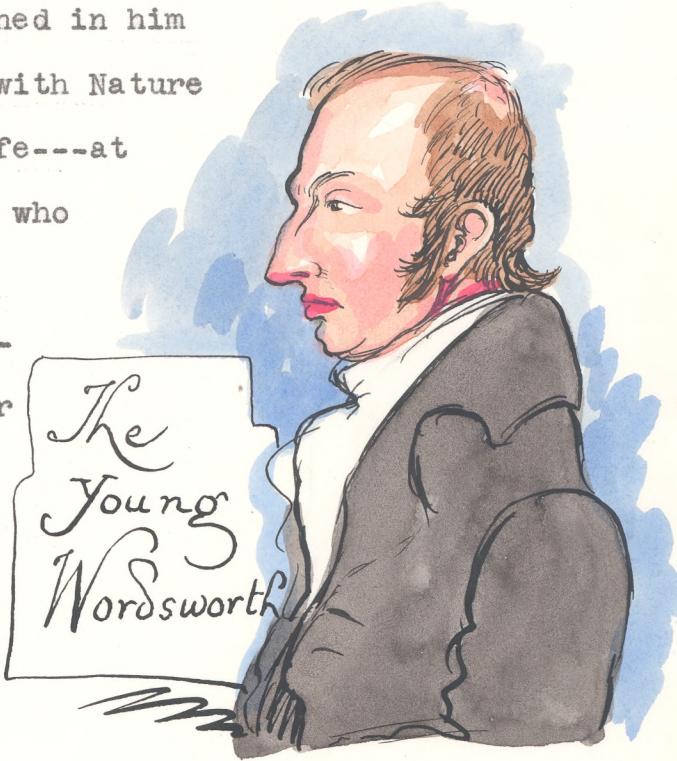 ned in him
with Nature
fe---at
who
-
r
The
Young
Wordsworth